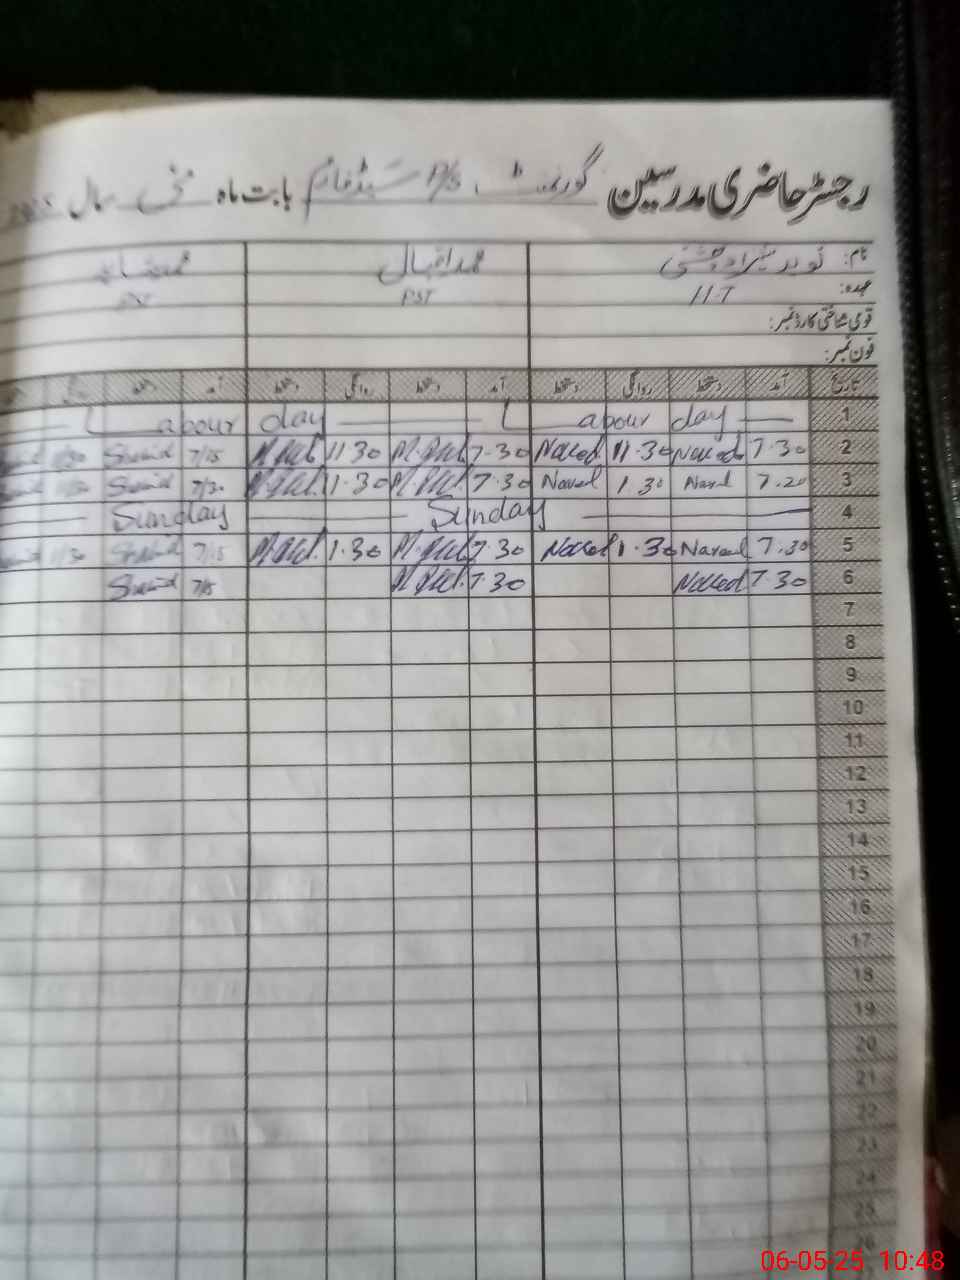 رجسٹر حاضری مدرسین گورنمنٹ P/S سیڈ فارم بابت ماہ مئی سال
نام: نوید شہزاد چشتی محمد اقبال محمد
عہدہ: H.T PST PST
قومی شناختی کارڈ نمبر:
فون نمبر:
تاریخ آمد دستخط روانگی دستخط آمد دستخط روانگی دستخط آمد دستخط روانگی
1 Labour day Labour day
2 7.30 Naveed 11.30 Naveed 7.30 11 30 7/15 Shahid 11/30
3 7.20 Naveed 1.30 Naveed 7.30 11.30 7/30 Shahid 11/30
4 Sunday Sunday
5 7.30 Naveed 1.30 Naveed 7.30 1.30 7/15 Shahid 1/30
6 7.30 Naveed 7.30 7/15 Shahid
7
8
9
10
11
12
13
14
15
16
17
18
19
20
21
22
23
24
25
06-05-25 10:48